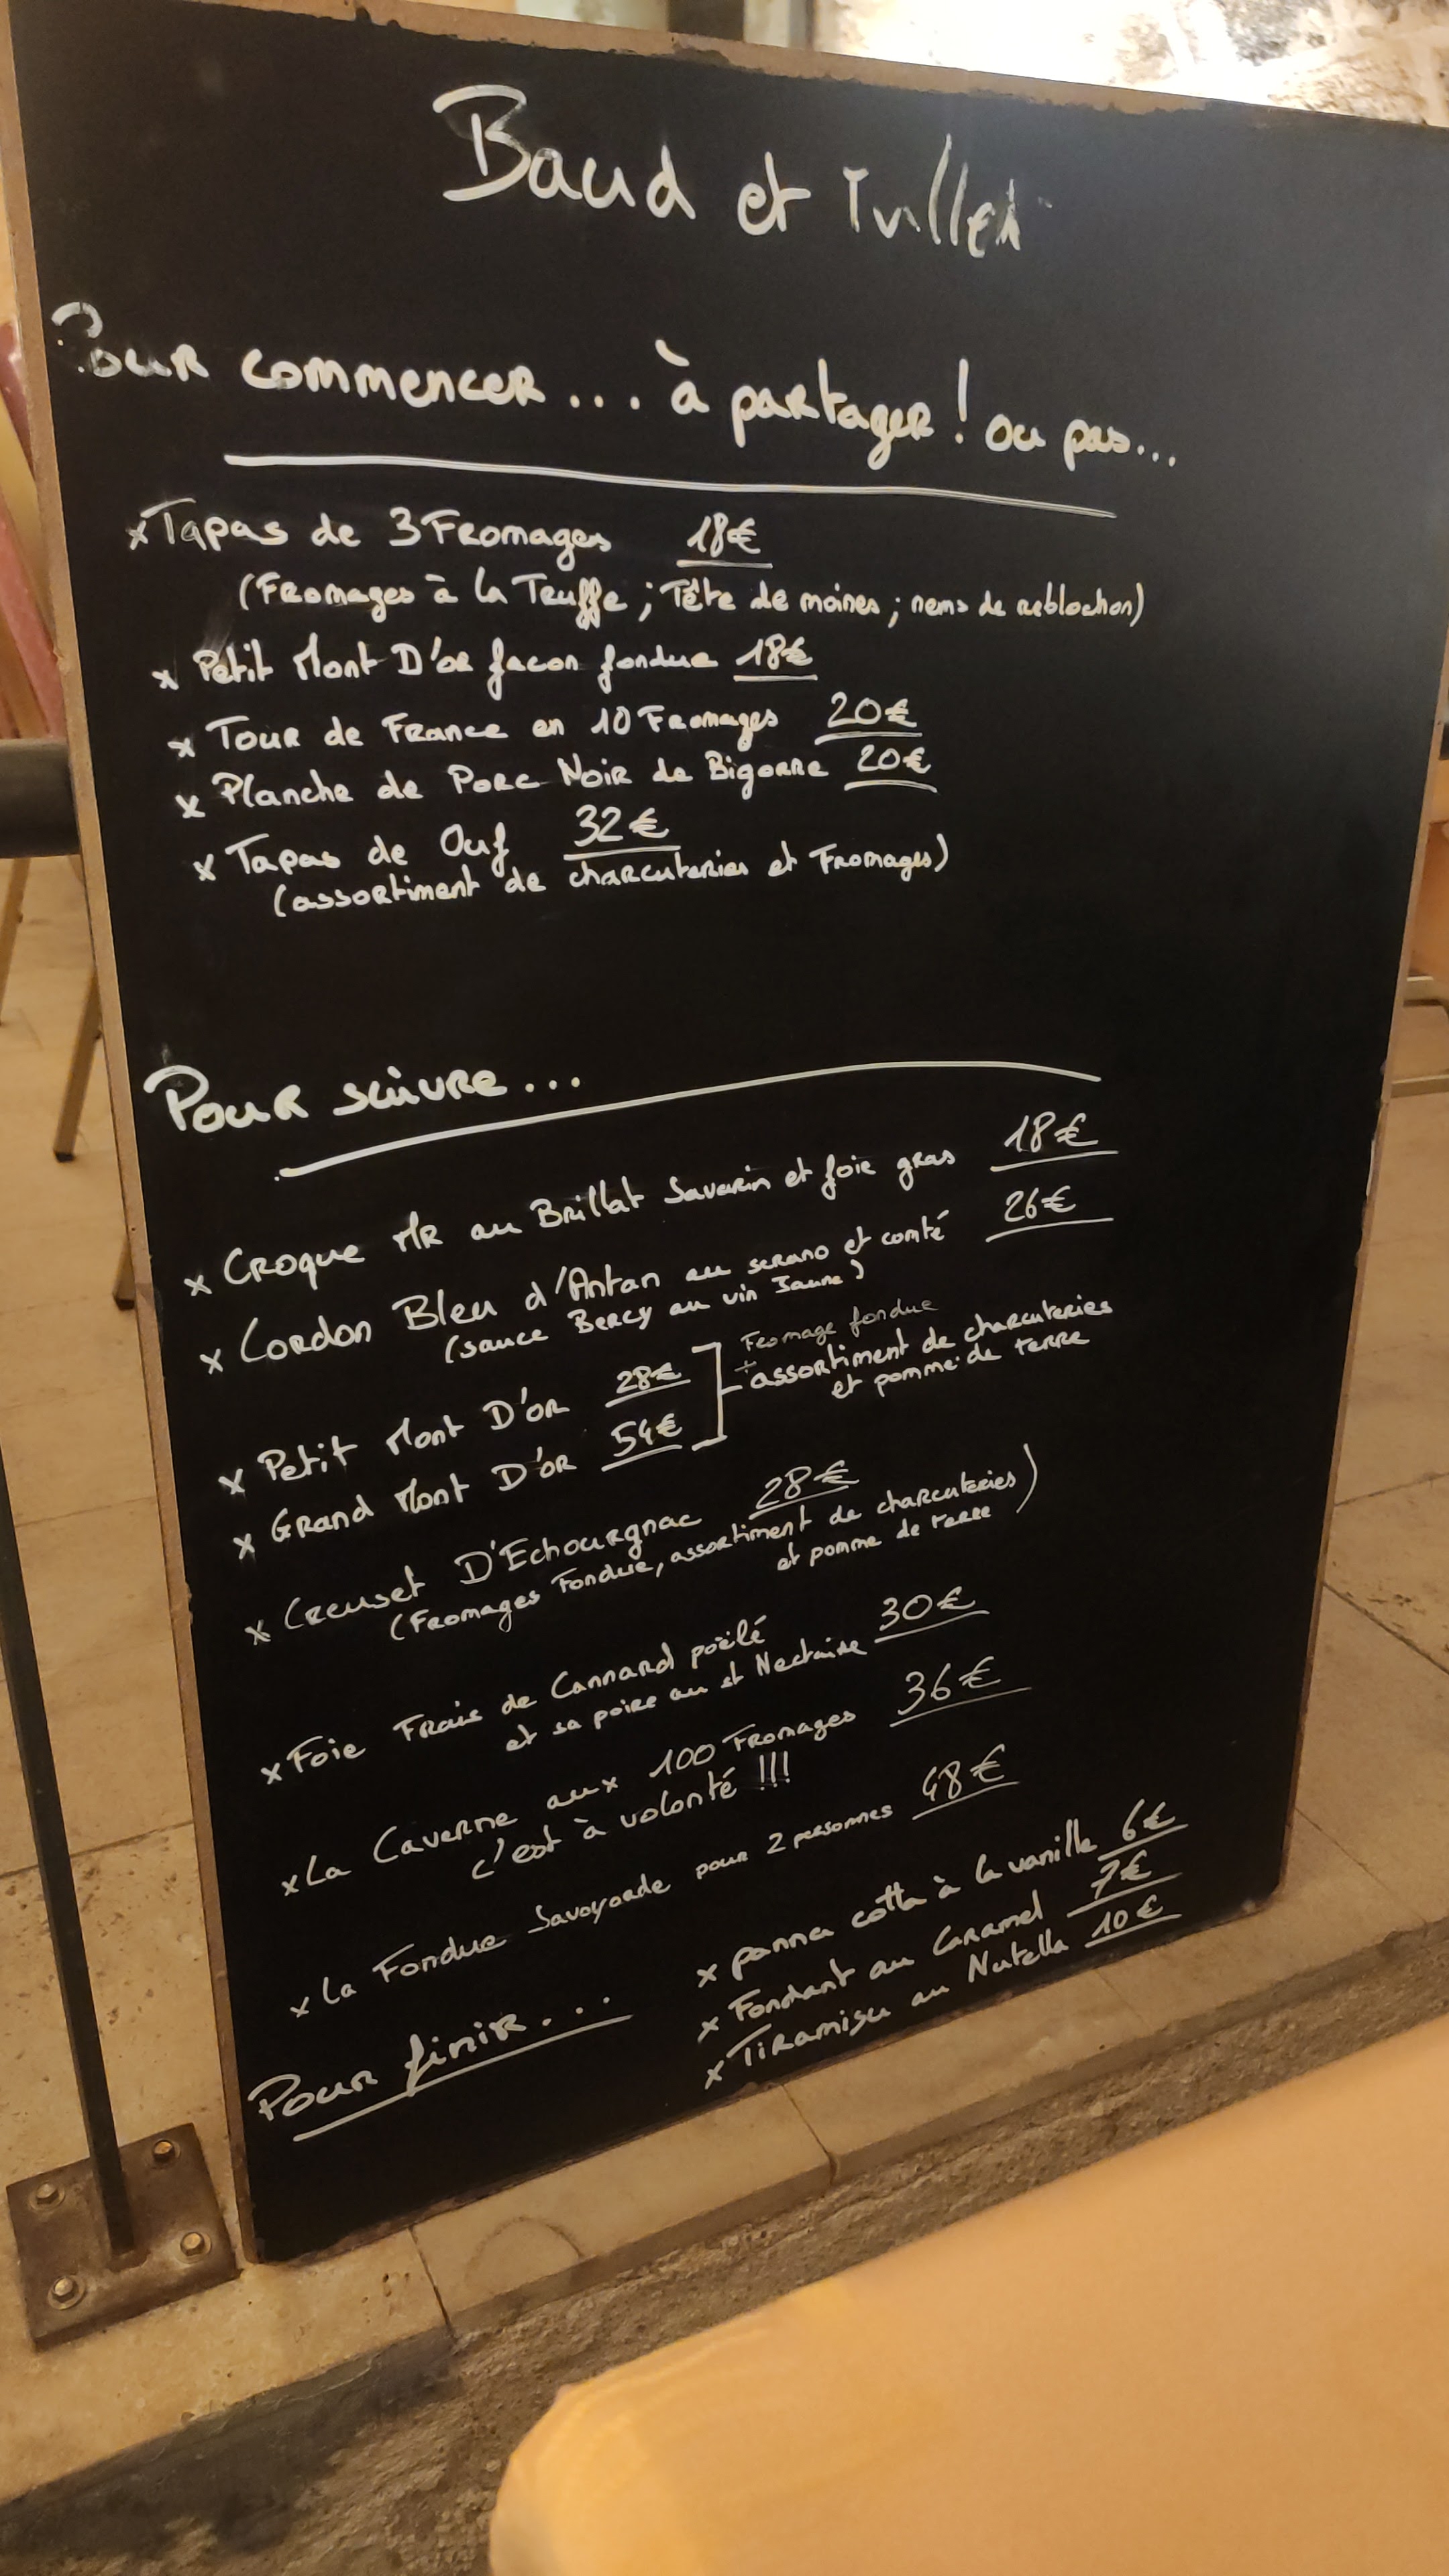 Baud et Tuillet
Pour commencer... à partager! ou pas...
x Tapas de 3 Fromages 18€
(Fromages à la Truffe ; Tête de moines ; nems de reblochon)
x Petit Mont D'or facon fondue 18€
x Tour de France en 10 Fromages 20€
x Planche de Porc Noir de Bigorre 20€
x Tapas de Ouf 32€
(assortiment de charcuteries et Fromages)
Pour suivre...
x Croque Mr au Brillat Savarin et foie gras 18€
x Cordon Bleu d'Antan au serano et comté 26€
(sauce Bercy au vin Jaune)
x Petit Mont D'or 28€
x Grand Mont D'or 54€
Fromage fondue
+ assortiment de charcuteries
et pomme de terre
x Creuset D'Echourgnac 28€
(Fromages Fondue, assortiment de charcuteries
et pomme de terre)
x Foie Frais de Cannard poëlé
et sa poire au st Nectaire 30€
x La Caverne aux 100 Fromages 36€
c'est à volonté !!!
x La Fondue Savoyarde pour 2 personnes 48€
Pour finir...
x panna cotta à la vanille 6€
x Fondant au Caramel 7€
x Tiramisu au Nutella 10€